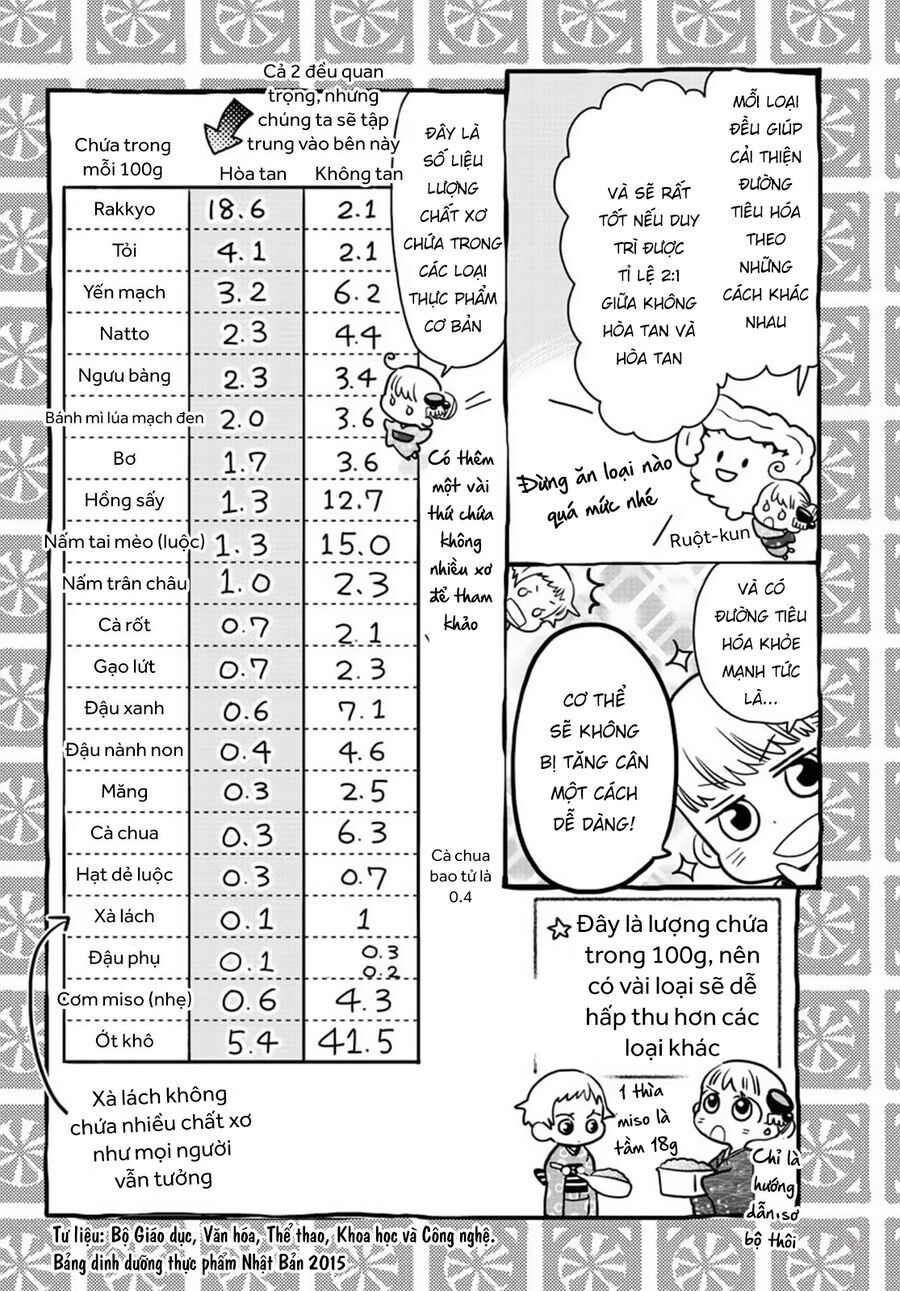 MỖI LOẠI
ĐỀU GIÚP
CẢI THIỆN
ĐƯỜNG
TIÊU HÓA
THEO
NHỮNG
CÁCH KHÁC
NHAU
VÀ SẼ RẤT
TỐT NẾU DUY
TRÌ ĐƯỢC
TỈ LỆ 2:1
GIỮA KHÔNG
HÒA TAN VÀ
HÒA TAN
Đừng ăn loại nào
quá mức nhé
Ruột-kun
VÀ CÓ
ĐƯỜNG TIÊU
HÓA KHỎE
MẠNH TỨC
LÀ...
CƠ THỂ
SẼ KHÔNG
BỊ TĂNG CÂN
MỘT CÁCH
DỄ DÀNG!
ĐÂY LÀ
SỐ LIỆU
LƯỢNG
CHẤT XƠ
CHỨA TRONG
CÁC LOẠI
THỰC PHẨM
CƠ BẢN
Cả 2 đều quan
trọng, nhưng
chúng ta sẽ tập
trung vào bên này
Chứa trong
mỗi 100g
Hòa tan Không tan
Rakkyo 18.6 2.1
Tỏi 4.1 2.1
Yến mạch 3.2 6.2
Natto 2.3 4.4
Ngưu bàng 2.3 3.4
Bánh mì lúa mạch đen 2.0 3.6
Bơ 1.7 3.6
Hồng sấy 1.3 12.7
Nấm tai mèo (luộc) 1.3 15.0
Nấm trân châu 1.0 2.3
Cà rốt 0.7 2.1
Gạo lứt 0.7 2.3
Đậu xanh 0.6 7.1
Đậu nành non 0.4 4.6
Măng 0.3 2.5
Cà chua 0.3 6.3
Hạt dẻ luộc 0.3 0.7
Xà lách 0.1 1
Đậu phụ 0.1 0.3
0.2
Cơm miso (nhẹ) 0.6 4.3
Ớt khô 5.4 41.5
Có thêm
một vài
thứ chứa
không
nhiều xơ
để tham
khảo
Cà chua
bao tử là
0.4
Xà lách không
chứa nhiều chất xơ
như mọi người
vẫn tưởng
☆ Đây là lượng chứa
trong 100g, nên
có vài loại sẽ dễ
hấp thu hơn các
loại khác
1 thìa
miso là
tầm 18g
Chỉ là
hướng
dẫn sơ
bộ thôi
Tư liệu: Bộ Giáo dục, Văn hóa, Thể thao, Khoa học và Công nghệ.
Bảng dinh dưỡng thực phẩm Nhật Bản 2015